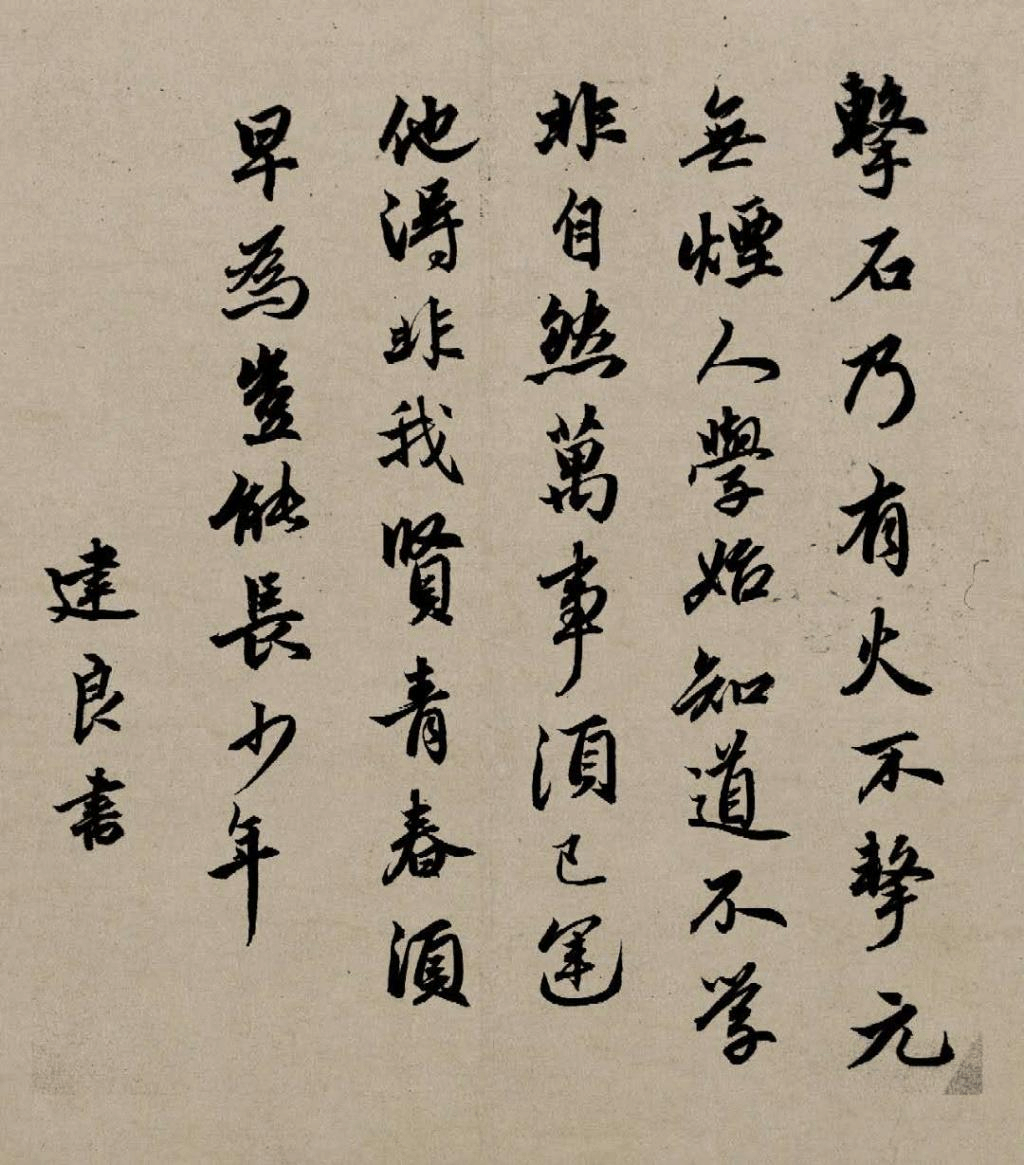 擊石乃有火不擊元
無煙人學始知道不学
非自然萬事須已運
他得非我賢青春須
早為豈能長少年
建良書